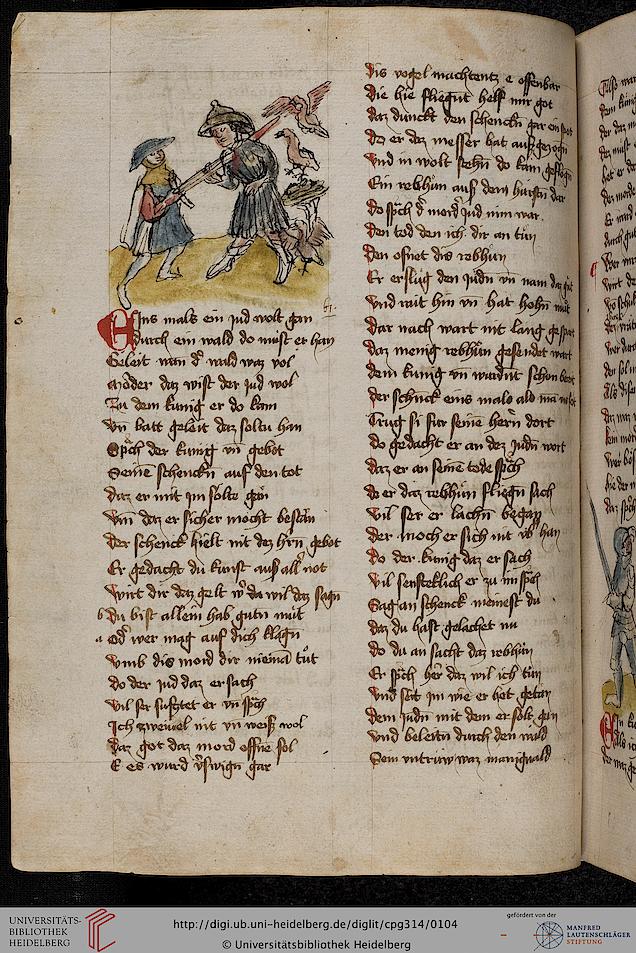 Eins mals ein jud wolt gan
durch ein wald do must er han
Geleit wan der wald waz vol
mörder daz wist der jud wol
Zu dem kunig er do kam
vn batt geleit daz soltu han
Sprch der kunig vn gebot
Seinē schenckn auf den tot
daz er mit im solte gan
vnn daz er sicher mocht bestan
der schenck hielt nit dez hrn gebot
Er gedacht du kunst auss all not
wirt dir daz gelt w da wil daz sagn
b du bist allein hab gutn mut
a Od wer mag auf dich klagn
vmb dis mord dir niemā tut
do der jud daz ersach
vil ser sufftet er vn sprch
Ich zweiuel nit vn weiss wol
daz got daz mord offne sol
E es wurd vswign gar
dis vogel machtentz e offenbar
die hie fliegnt helf mir got
daz dunckt den schenckn gar ein spot
do er daz messer hat aufgezogn
vnd in wolt stechn do kam geflogn
Ein rebhun auss dem hursten dar
do sprch d mord jud nim war
den tod den ich dir an tun
den ofnet dis rebhun
Er erslug den judn vn nam daz gut
vnd rait hin vn hat hohn mut
dar nach wart nit lang gespart
daz menig rebhun gesendet wart
dem kunig vn wurdnt schon berait
der schnck eins mals als
Trug si fur seinē hern dort
do gedacht er an dez judn wort
daz er an seinē tode sprch
do er daz rebhun fliegn sach
vil ser er lachn began
der moch er sich nit vb han
do der kunig daz ersach
vil senfteklich er zu im sprch
Sag an schenck meinest du
daz du hast gelachet nu
do du an sacht daz rebhun
Er sprch her daz wil ich tun
vnd seit im wie er het getan
dem judn mit dem er solt gan
vnd beleitn durch den wald
Sein vntriuw waz maniguald
UNIVERSITÄTS-
BIBLIOTHEK
HEIDELBERG
http://digi.ub.uni-heidelberg.de/diglit/cpg314/0104
© Universitätsbibliothek Heidelberg
gefördert von der
MANFRED
LAUTENSCHLÄGER
STIFTUNG